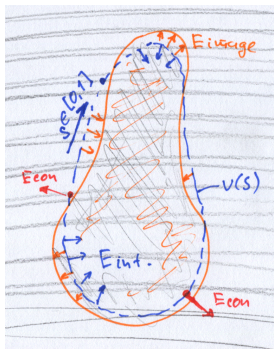 Eimage
s∈[0,1]
Econ
v(s)
Eint.
Econ